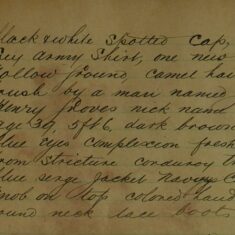 Black & white spotted cap,
Grey Army Shirt, one new
hollow ground, camel hair
brush by a man named
Henry Groves nick name
age 30, 5ft 6, dark brown
blue eyes complexion fresh
from stricture corduroy
blue serge jacket
knob on top colored hand
round neck lace boots